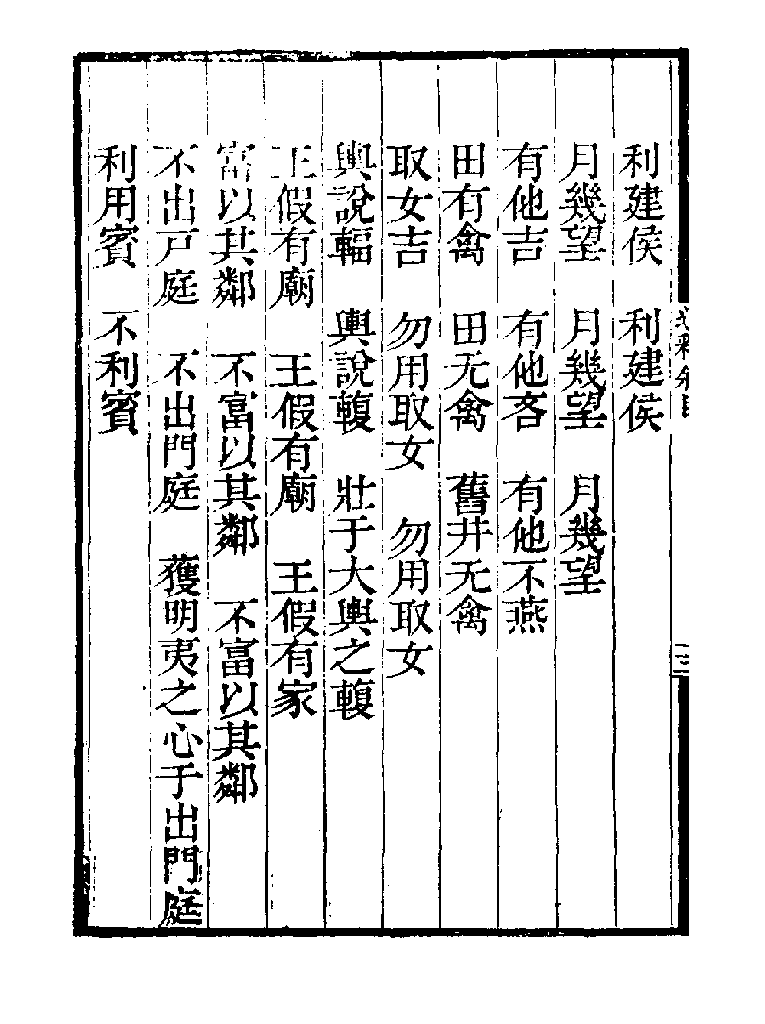 利建侯　利建侯
月幾望　月幾望　月幾望
有他吉　有他吝　有他不燕
田有禽　田无禽　舊井无禽
取女吉　勿用取女　勿用取女
輿說輻　輿說輹　壯于大輿之輹
王假有廟　王假有廟　王假有家
富以其鄰　不富以其鄰　不富以其鄰
不出戸庭　不出門庭　獲明夷之心于出門庭
利用賓　不利賓